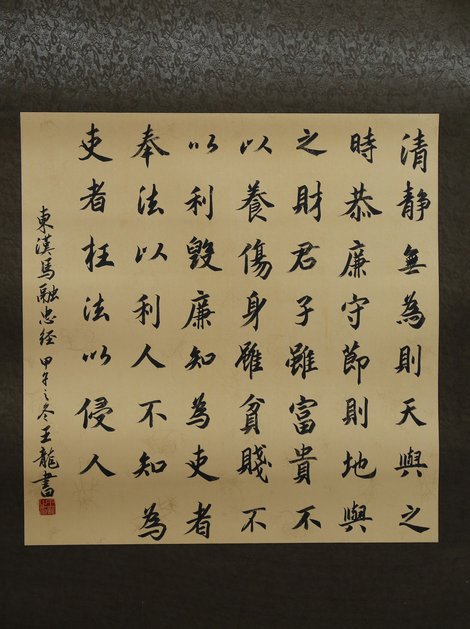 清靜無為則天與之
時恭廉守節則地與
之財君子雖富貴不
以養傷身雖貧賤不
以利毀廉知為吏者
奉法以利人不知為
吏者枉法以侵人
東漢馬融忠經 甲午之冬王龍書